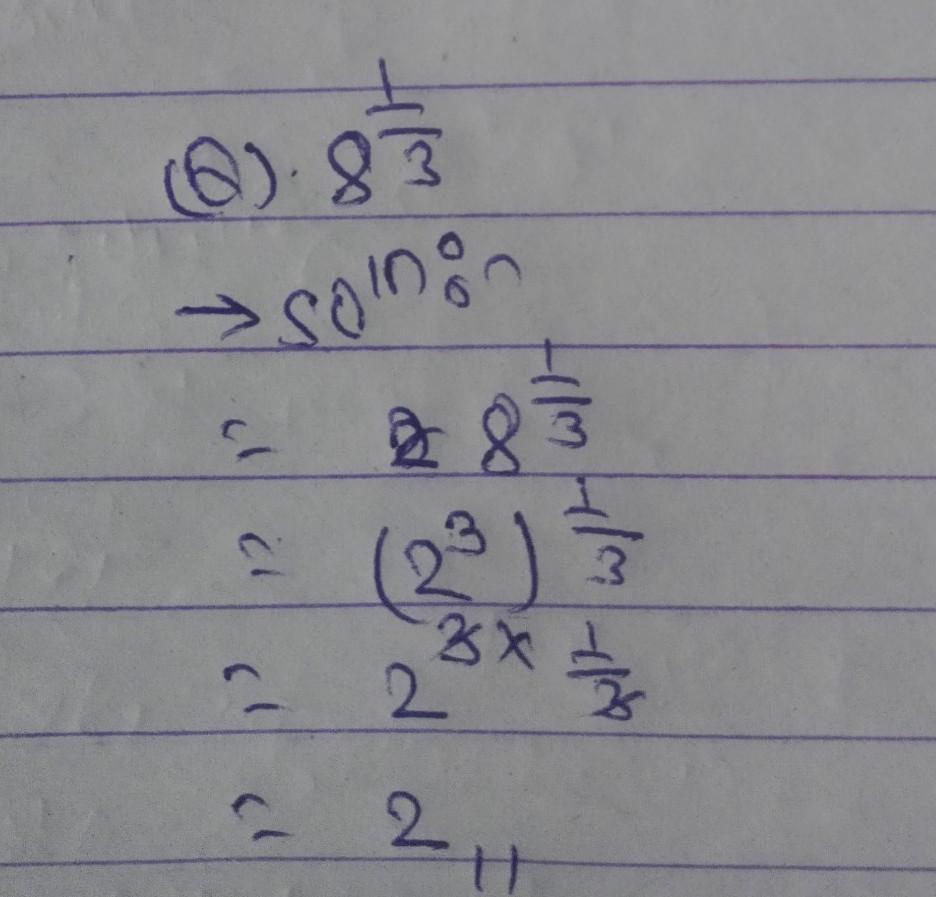 (Q). 8^{1/3}
→ so^{ln}:-
= 8^{1/3}
= (2^3)^{1/3}
= 2^{3 × 1/3}
= 2 ,,